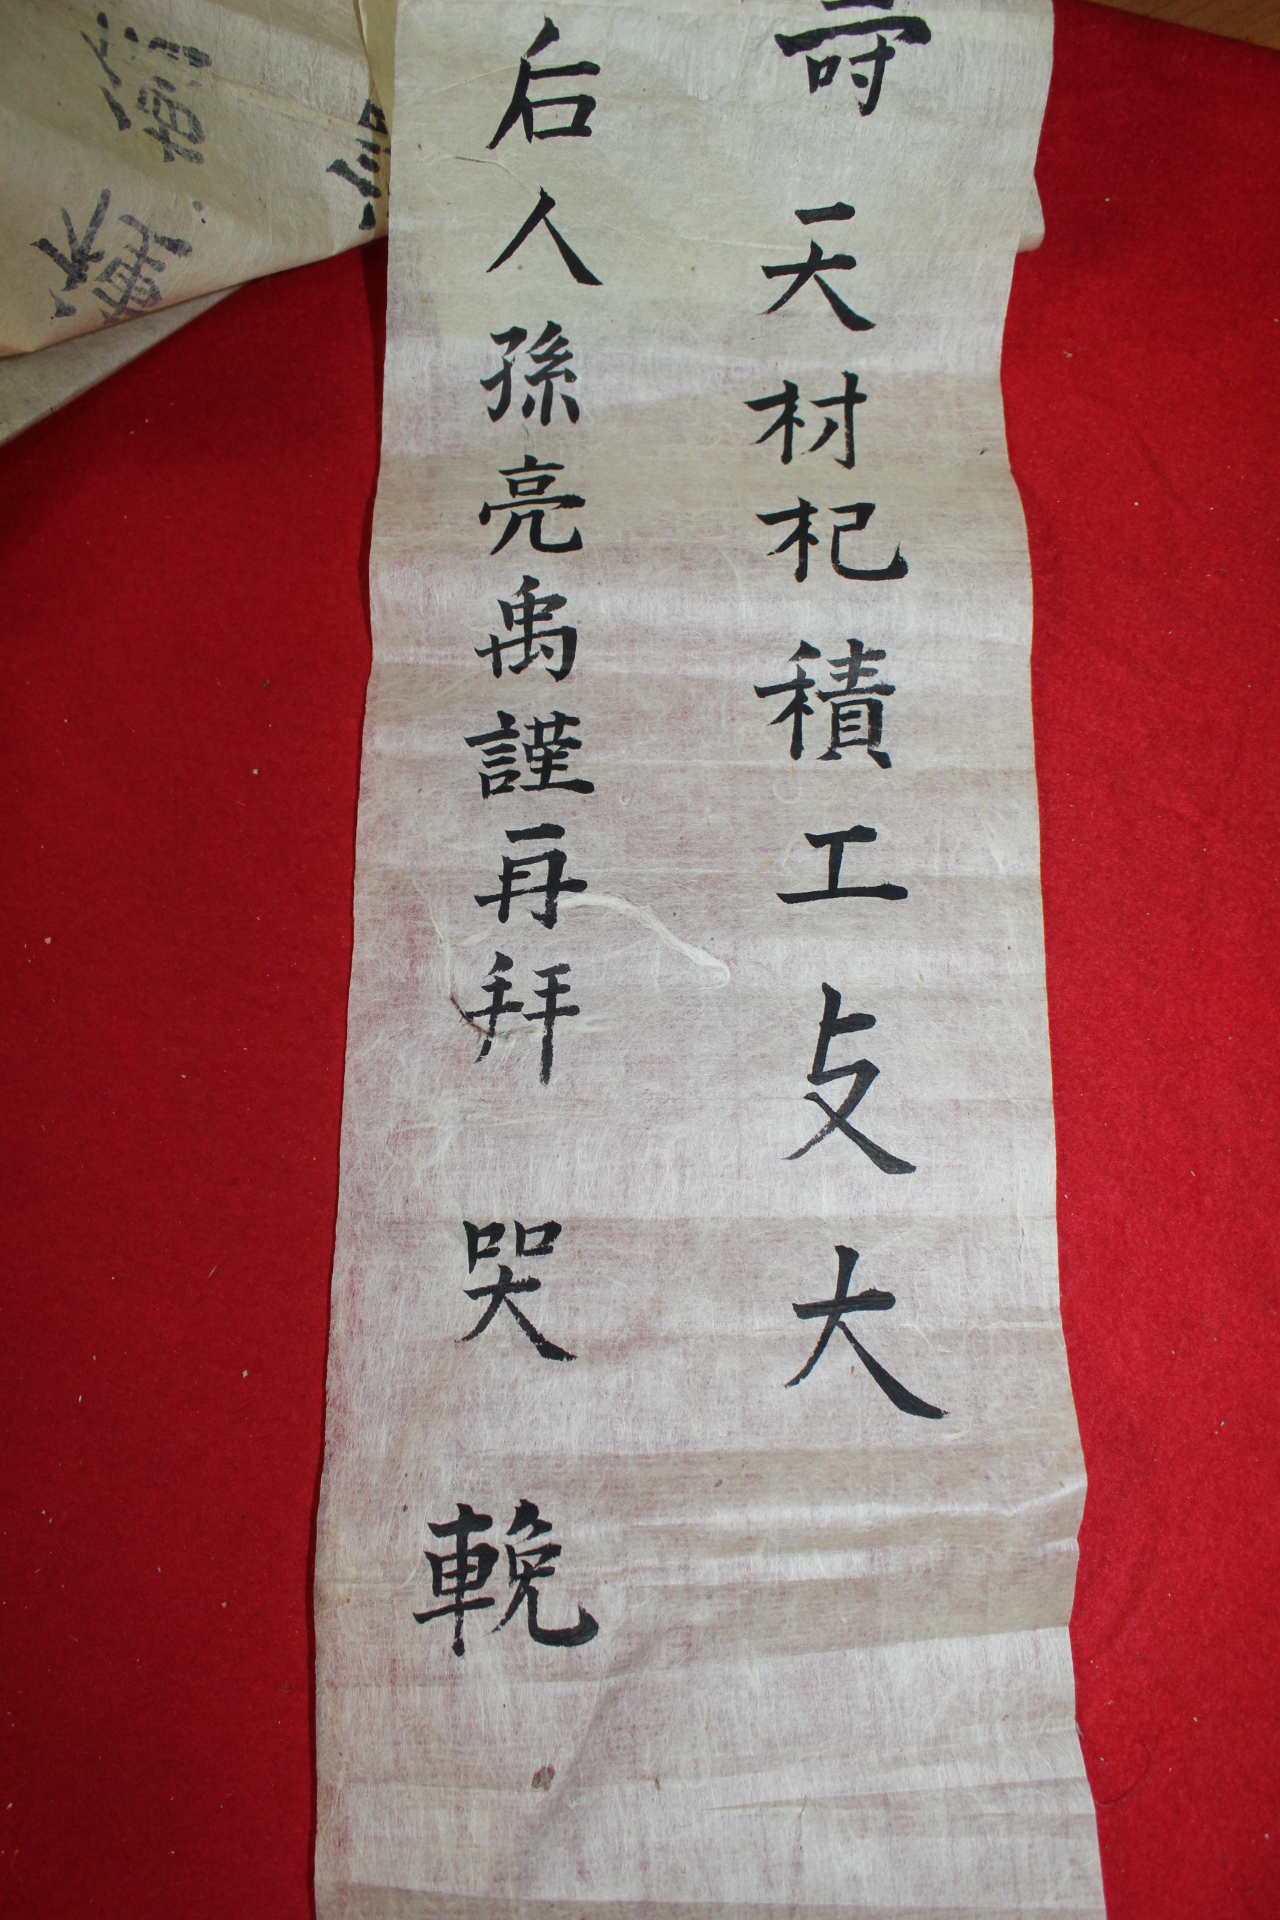 壽天材杞積工攴大
后人孫亮禹謹再拜 哭 輓